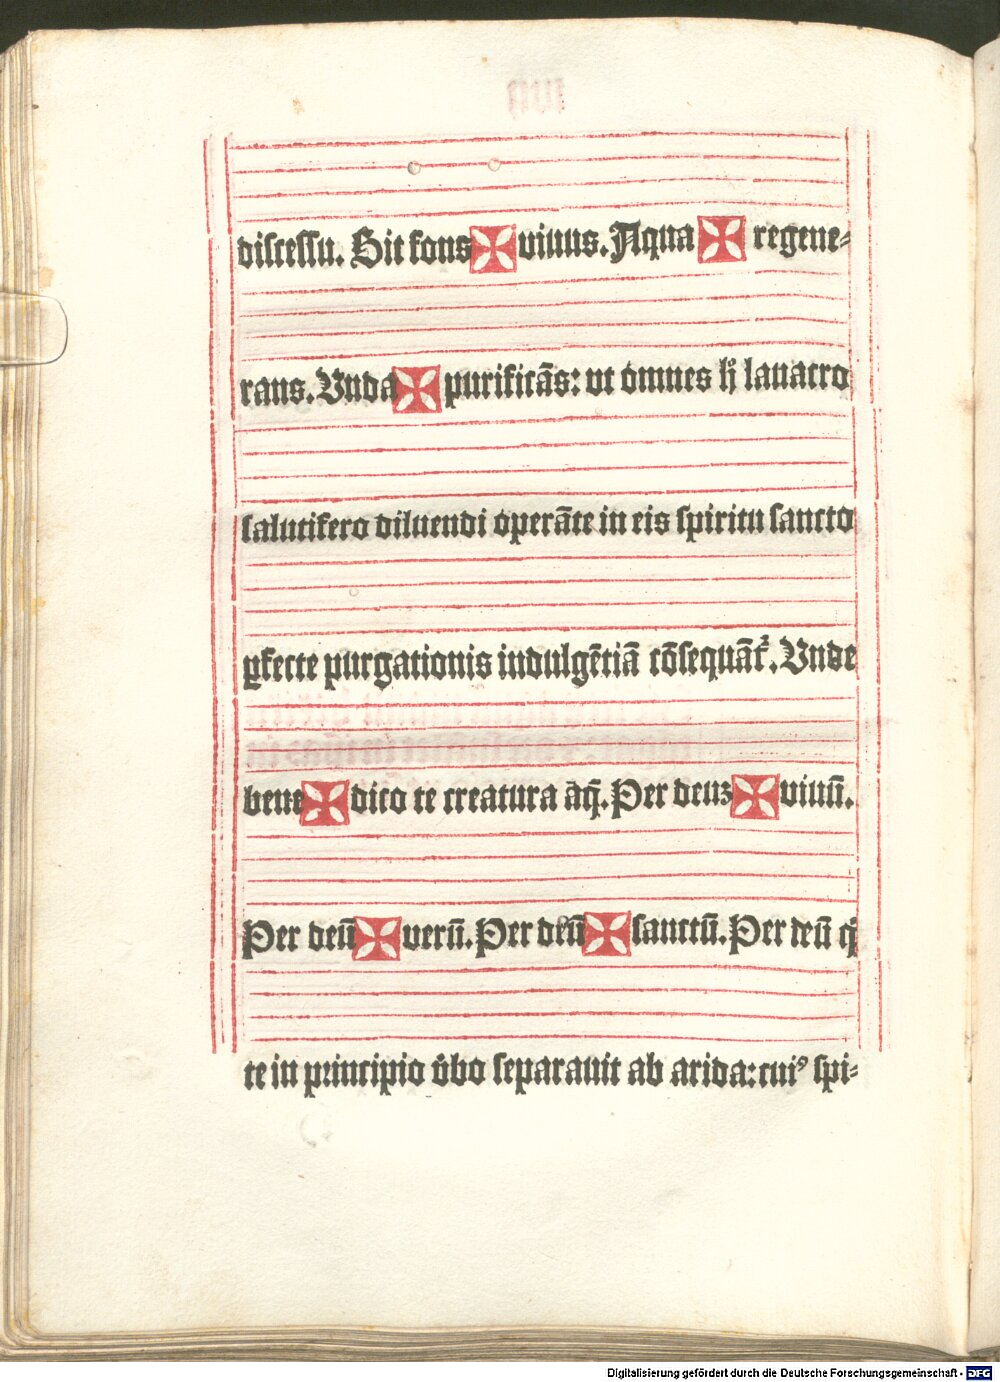 discessu. Sit fons ✠ viuus. Aqua ✠ regene-
rans. Vnda ✠ purificās: vt omnes hͥ lauacro
salutifero diluendi operāte in eis spiritu sancto
ꝑfecte purgationis indulgētiā cōsequāt᷑. Vnde
bene ✠ dico te creatura aq̄. Per deuz ✠ viuū.
Per deū ✠ verū. Per deū ✠ sanctū. Per deū qͥ
te in principio v̄bo separauit ab arida: cuiꝰ spi-
Digitalisierung gefördert durch die Deutsche Forschungsgemeinschaft - DFG